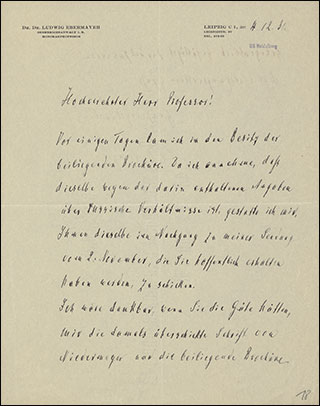 DR. DR. LUDWIG EBERMAYER
OBERREICHSANWALT I. R.
LEIPZIG C 1, DEN 4. 12. 31.
UB Heidelberg
Hochverehrter Herr Professor!
Vor einigen Tagen kam ich in den Besitz der
beiliegenden Broschüre. Da ich annehme, daß
dieselbe wegen der darin enthaltenen Angaben
über Russische Verhältnisse ist, gestatte ich mir,
Ihnen dieselbe im Nachgang zu meiner Sendung
vom 2. November, die Sie hoffentlich erhalten
haben werden, zu schicken.
Ich wäre dankbar, wenn Sie die Güte hätten,
mir die damals überschickte Schrift von
und die beiliegende Broschüre
18